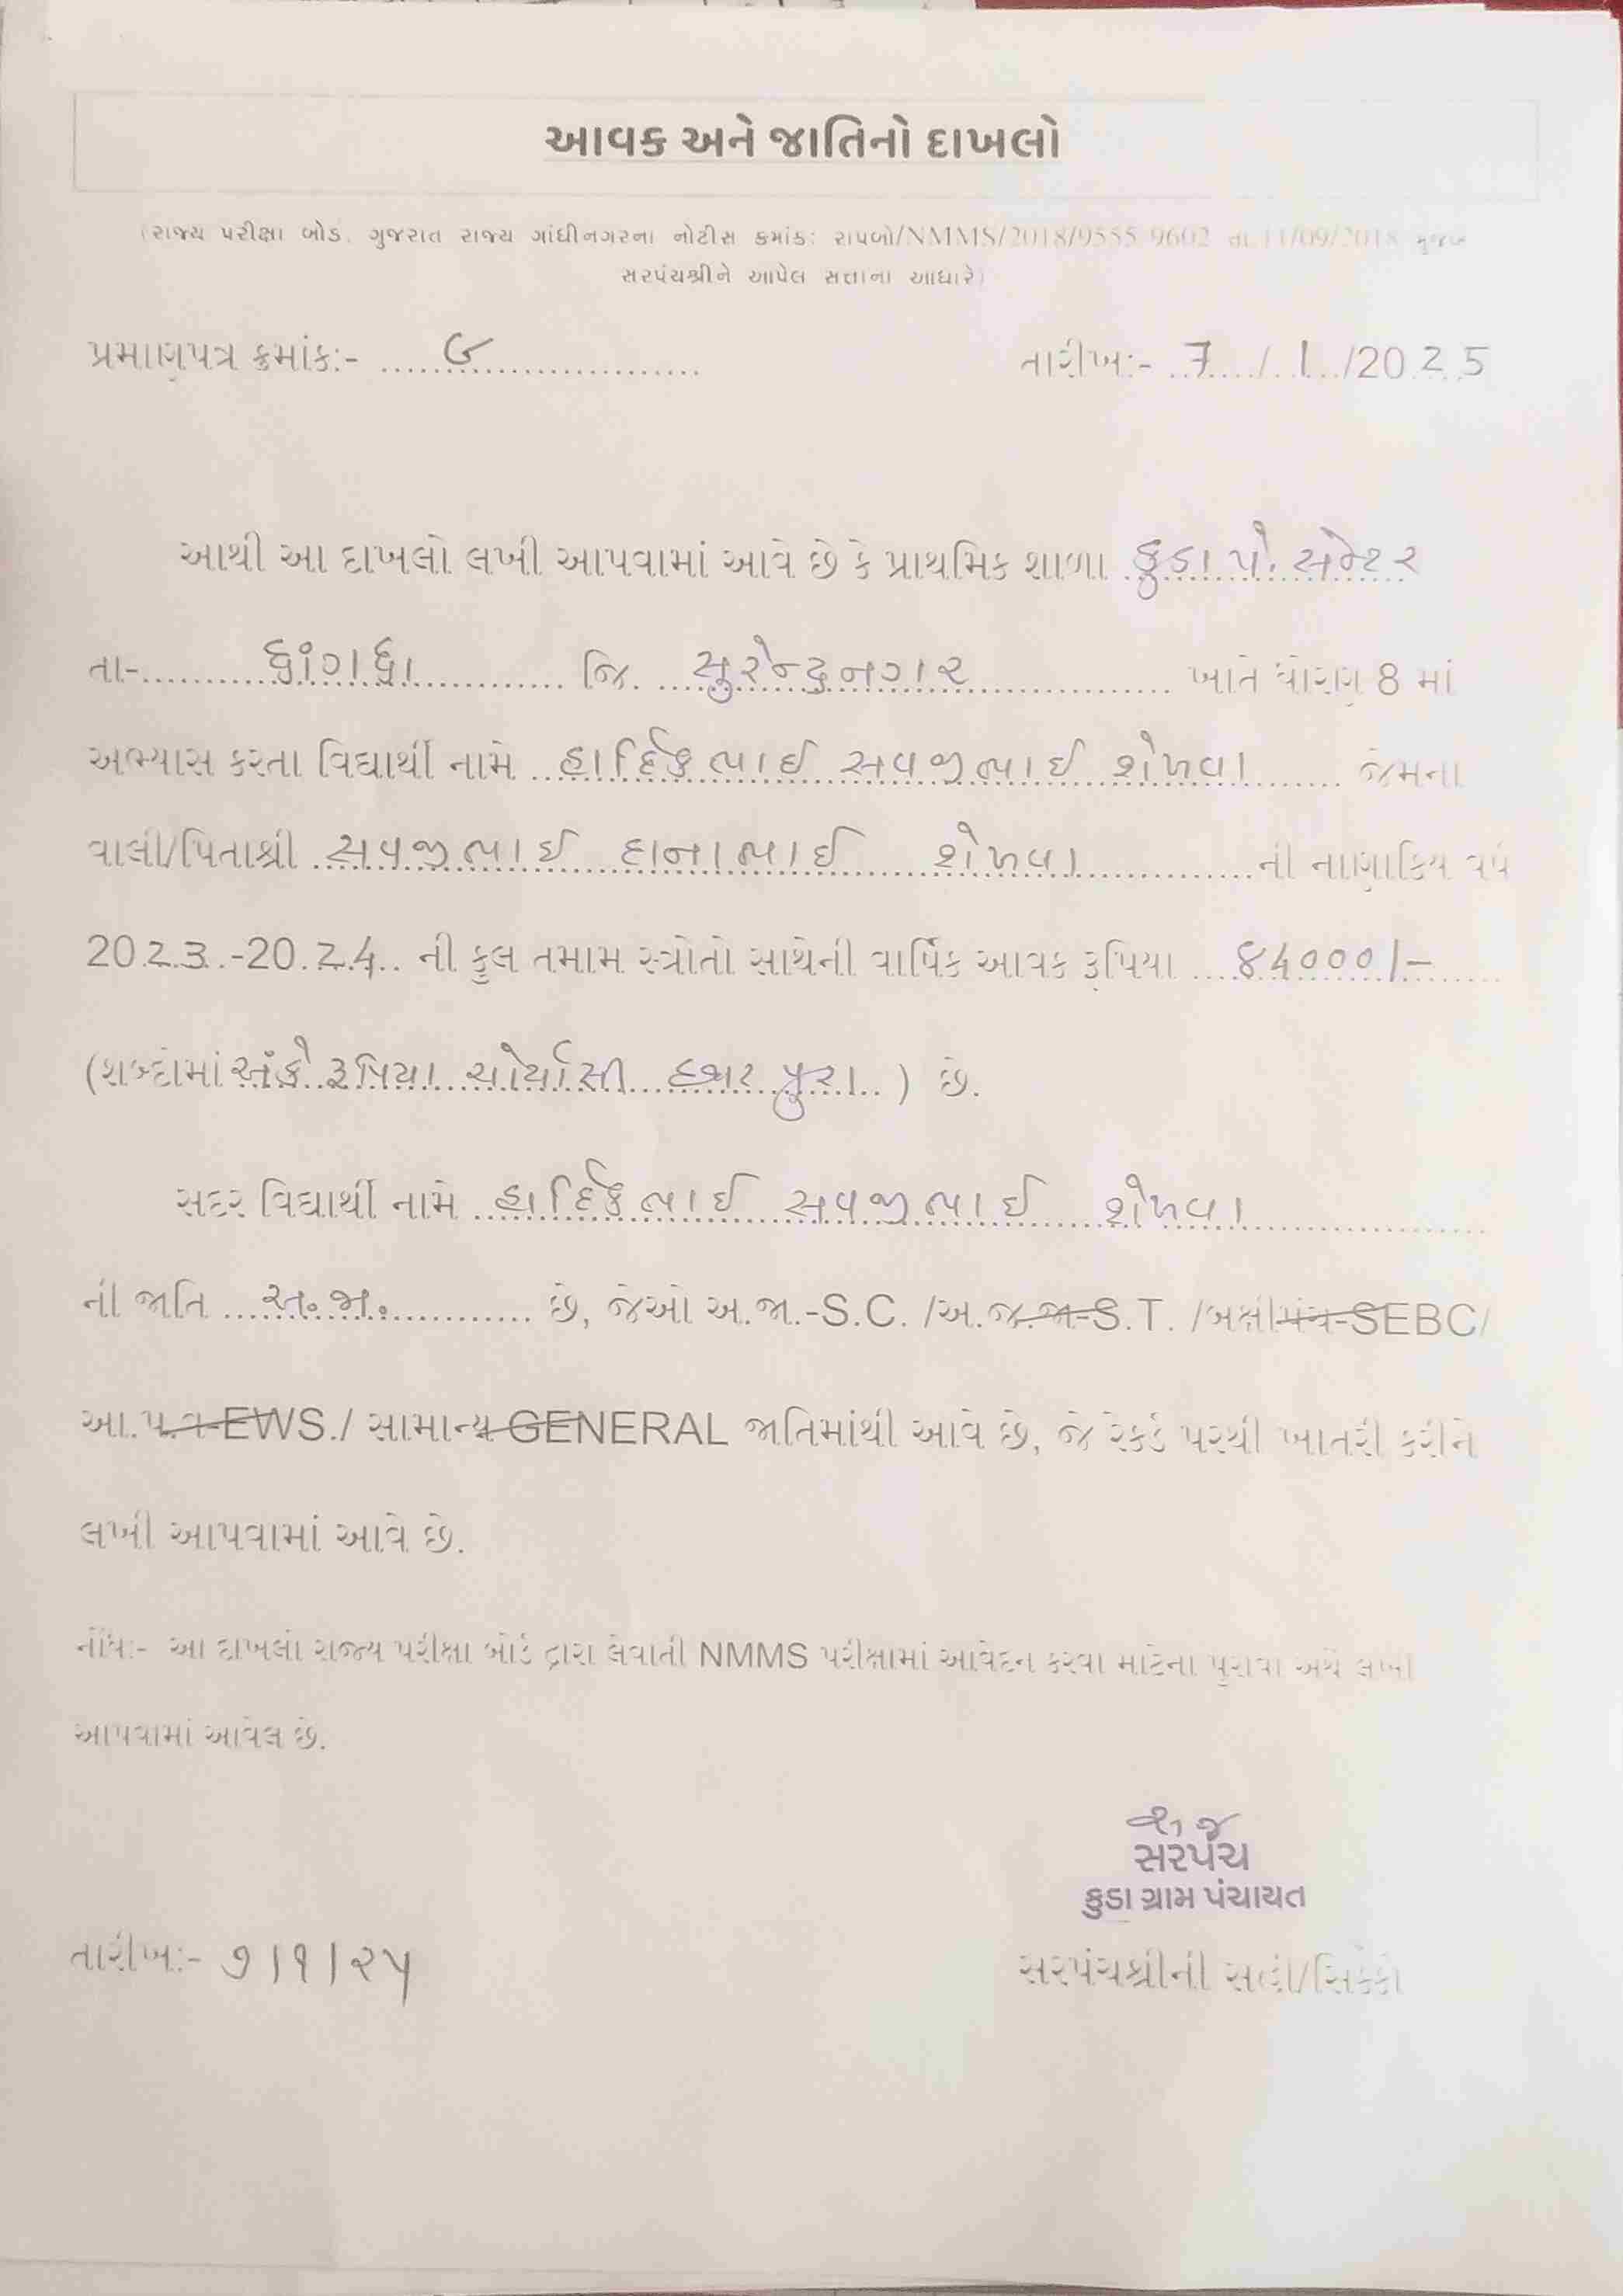 આવક અને જાતિનો દાખલો
(રાજ્ય પરીક્ષા બોર્ડ, ગુજરાત રાજ્ય ગાંધીનગરના નોટીસ ક્રમાંક: રાપબો/NMMS/2018/9555-9602 તા.11/09/2018 મુજબ
સરપંચશ્રીને આપેલ સત્તાના આધારે)
પ્રમાણપત્ર ક્રમાંક:- ૯ તારીખ:- 7/1/2025
આથી આ દાખલો લખી આપવામાં આવે છે કે પ્રાથમિક શાળા કુડા પે. સેન્ટર
તા- ધ્રાંગધ્રા જિ. સુરેન્દ્રનગર ખાતે ધોરણ 8 માં
અભ્યાસ કરતા વિદ્યાર્થી નામે હાર્દિકભાઈ સવજીભાઈ શેખવા જેમના
વાલી/પિતાશ્રી સવજીભાઈ દાનાભાઈ શેખવા ની નાણાકિય વર્ષ
2023-2024 ની કુલ તમામ સ્ત્રોતો સાથેની વાર્ષિક આવક રૂપિયા ૮4૦૦૦/-
(શબ્દોમાં અંકે રૂપિયા ચોર્યાસી હજાર પુરા) છે.
સદર વિદ્યાર્થી નામે હાર્દિકભાઈ સવજીભાઈ શેખવા
ની જાતિ અ.જા. છે, જેઓ અ.જા.-S.C. /અ.જ.જા-S.T. /બક્ષીપંચ-SEBC/
આ.પ.વ-EWS./ સામાન્ય-GENERAL જાતિમાંથી આવે છે, જે રેકર્ડ પરથી ખાતરી કરીને
લખી આપવામાં આવે છે.
નોંધ:- આ દાખલો રાજ્ય પરીક્ષા બોર્ડ દ્વારા લેવાતી NMMS પરીક્ષામાં આવેદન કરવા માટેના પુરાવા અર્થે લખી
આપવામાં આવેલ છે.
સરપંચ
કુડા ગ્રામ પંચાયત
તારીખ:- ૭/૧/૨૫ સરપંચશ્રીની સહી/સિક્કો